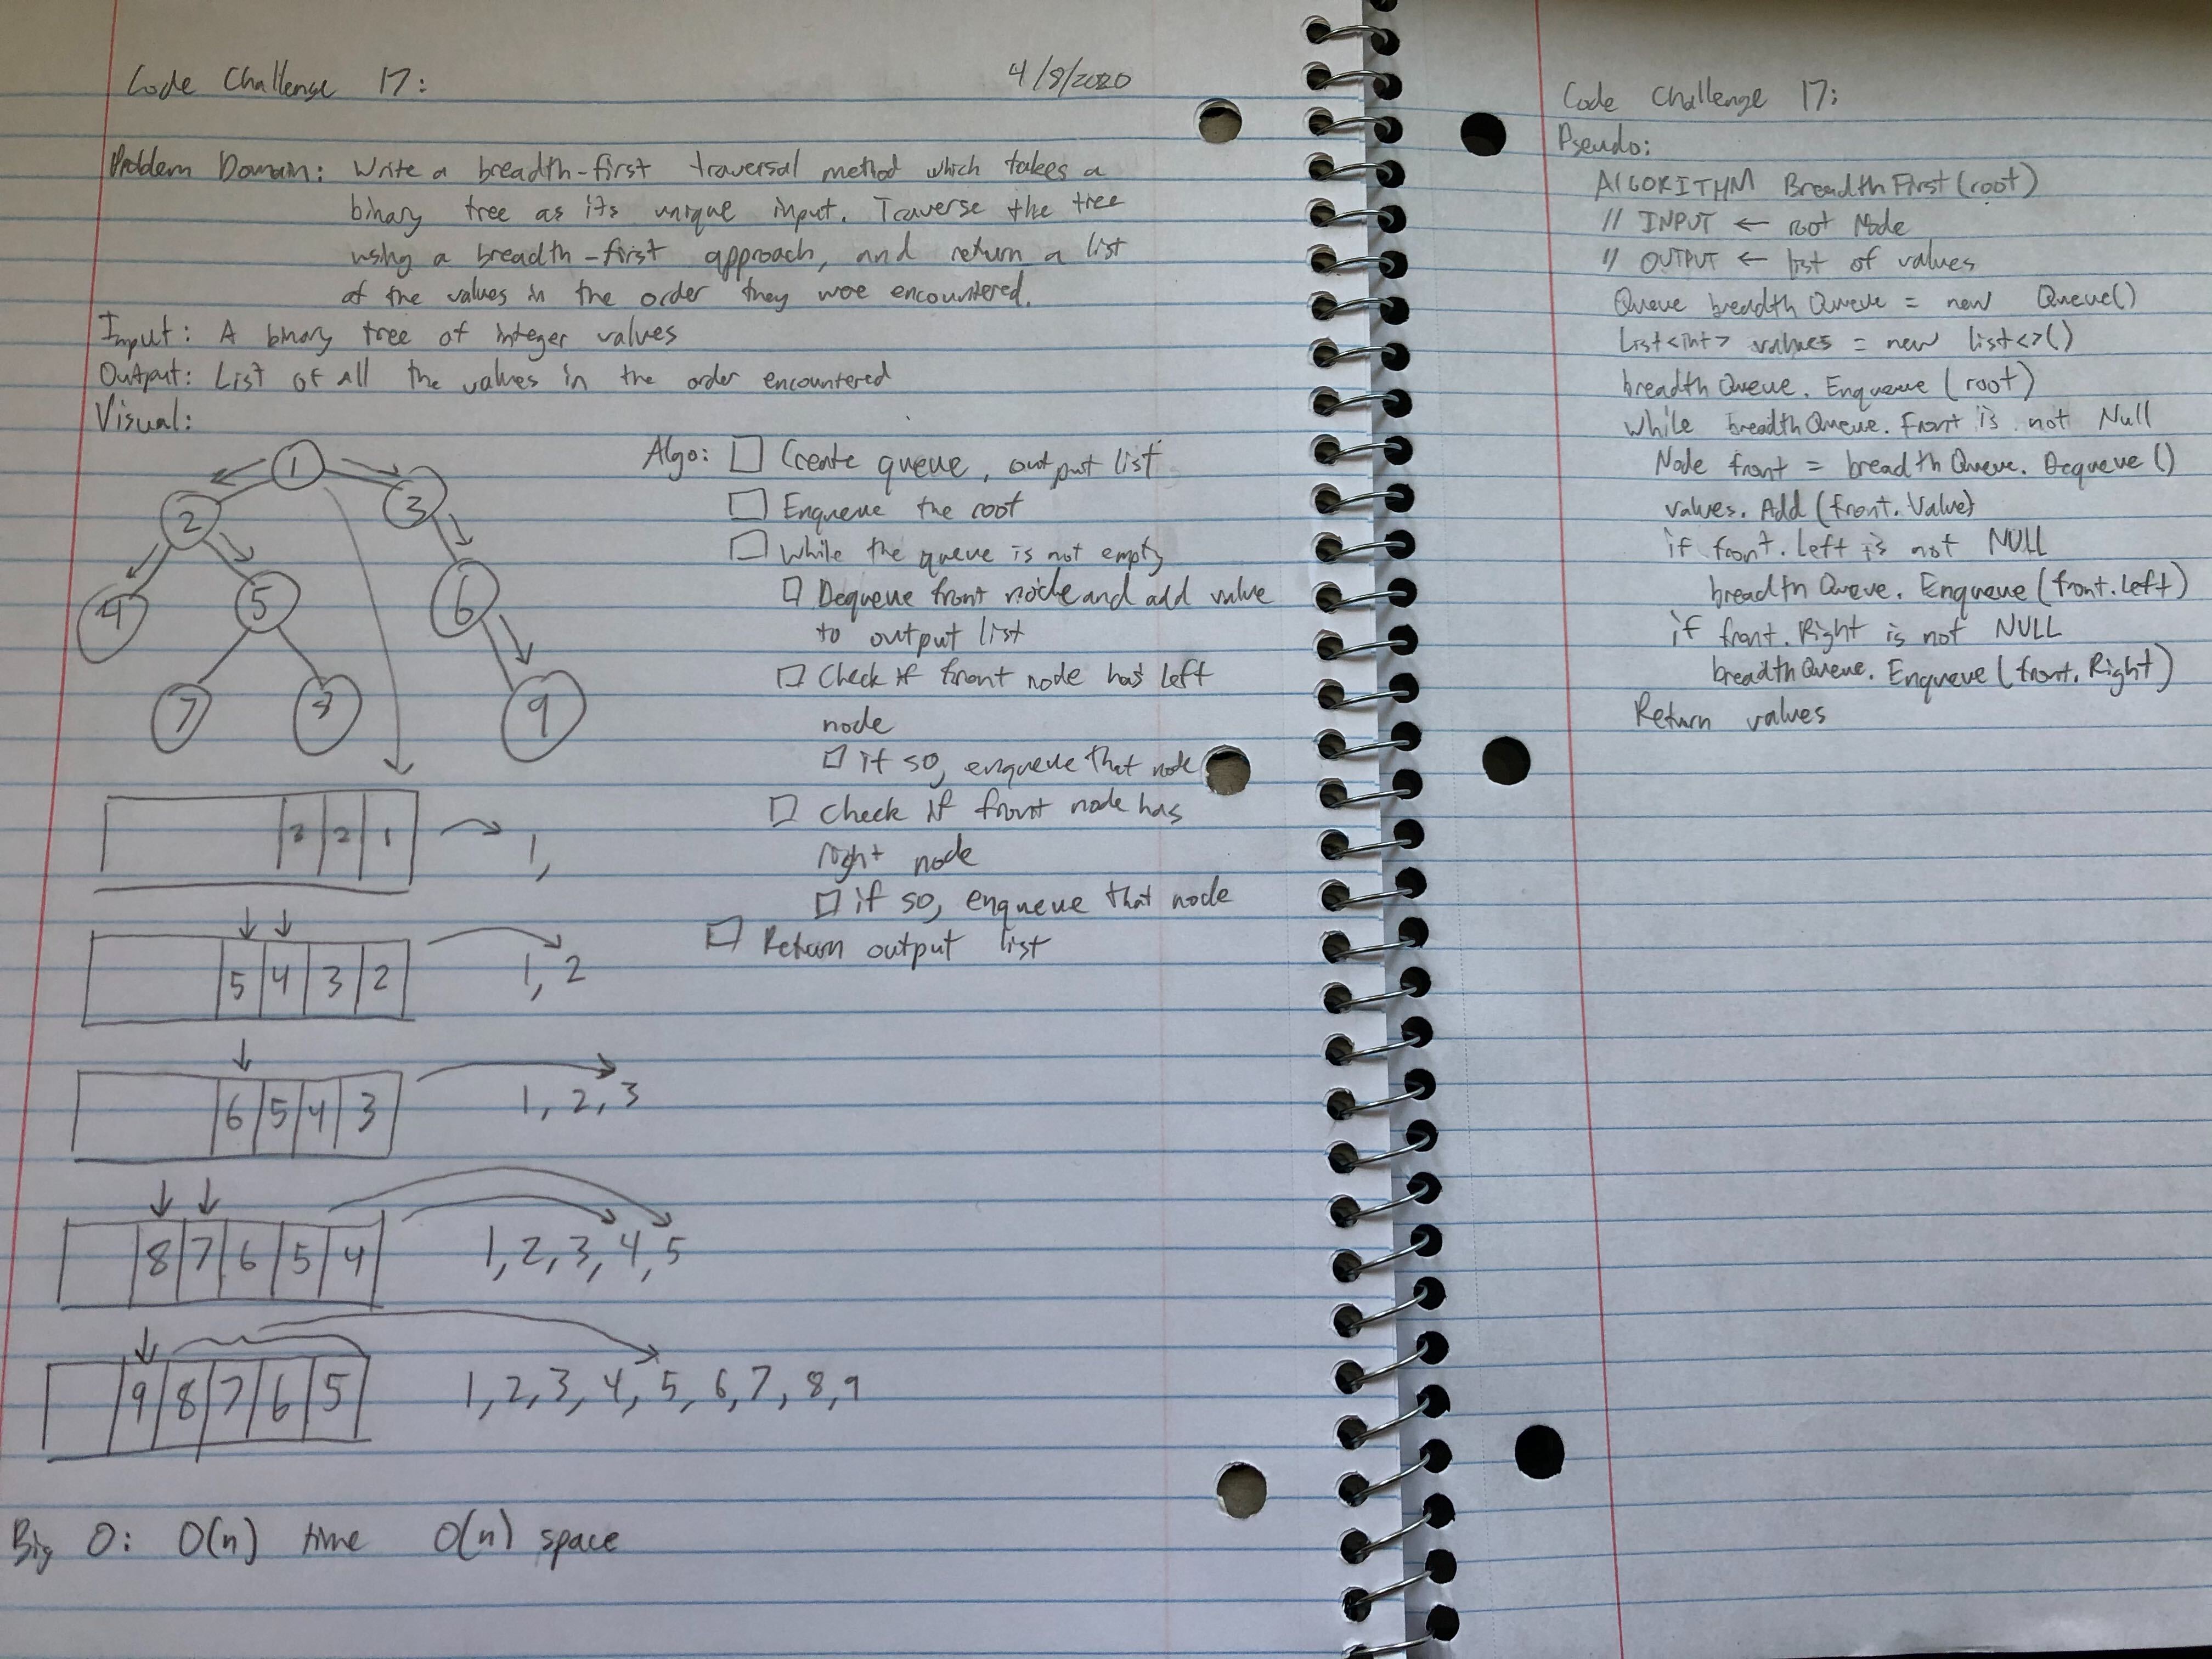 Code Challenge 17:
4/8/2020
Problem Domain: Write a breadth-first traversal method which takes a
binary tree as its unique input. Traverse the tree
using a breadth-first approach, and return a list
of the values in the order they were encountered.
Input: A binary tree of integer values
Output: List of all the values in the order encountered
Visual:
1
2 3
4 5 6
7 8 9
3 2 1 1,
5 4 3 2 1, 2
6 5 4 3 1, 2, 3
8 7 6 5 4 1, 2, 3, 4, 5
9 8 7 6 5 1, 2, 3, 4, 5, 6, 7, 8, 9
Big O: O(n) time O(n) space
Algo: □ Create queue, output list
□ Enqueue the root
□ While the queue is not empty
□ Dequeue front node and add value
to output list
□ Check if front node has left
node
□ if so, enqueue that node
□ Check if front node has
right node
□ if so, enqueue that node
□ Return output list
Code Challenge 17:
Pseudo:
ALGORITHM BreadthFirst(root)
// INPUT ← root Node
// OUTPUT ← list of values
Queue breadthQueue = new Queue()
List<int> values = new list<>()
breadthQueue. Enqueue (root)
while breadthQueue. Front is not Null
Node front = breadthQueue. Dequeue ()
values. Add (front. Value)
if front. Left is not NULL
breadthQueue. Enqueue (front. Left)
if front. Right is not NULL
breadthQueue. Enqueue (front. Right)
Return values